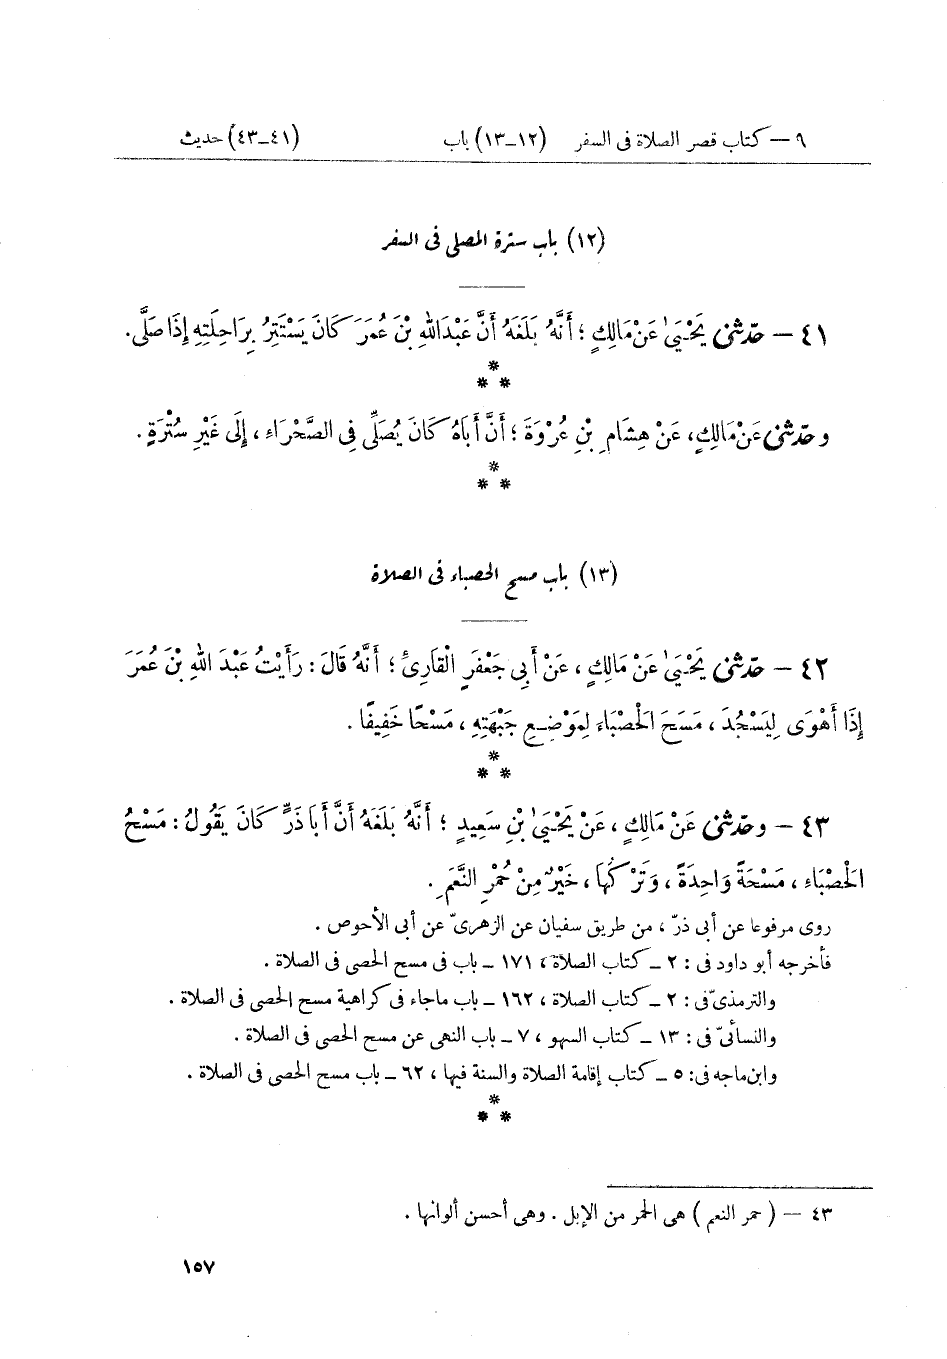 ٩ – كتاب قصر الصلاة فى السفر (١٢–١٣) باب (٤١–٤٣) حديث
(١٢) باب سترة المصلى فى السفر
٤١ – حدّثنى يَحْيَىٰ عَنْ مَالِكٍ ؛ أَنَّهُ بَلَغَهُ أَنَّ عَبْدَ اللهِ بْنَ عُمَرَ كَانَ يَسْتَتِرُ بِرَاحِلَتِهِ إِذَا صَلَّى.
*
* *
وحدّثنى عَنْ مَالِكٍ، عَنْ هِشَامِ بْنِ عُرْوَةَ ؛ أَنَّ أَبَاهُ كَانَ يُصَلِّى فِى الصَّحْرَاءِ ، إِلَى غَيْرِ سُتْرَةٍ .
*
* *
(١٣) باب مسح الحصباء فى الصلاة
٤٢ – حدّثنى يَحْيَىٰ عَنْ مَالِكٍ ، عَنْ أَبِى جَعْفَرٍ الْقَارِئِ ؛ أَنَّهُ قَالَ : رَأَيْتُ عَبْدَ اللهِ بْنَ عُمَرَ
إِذَا أَهْوَى لِيَسْجُدَ ، مَسَحَ الْحَصْبَاءَ لِمَوْضِعِ جَبْهَتِهِ ، مَسْحًا خَفِيفًا .
*
* *
٤٣ – وحدّثنى عَنْ مَالِكٍ ، عَنْ يَحْيَىٰ بْنِ سَعِيدٍ ؛ أَنَّهُ بَلَغَهُ أَنَّ أَبَا ذَرٍّ كَانَ يَقُولُ : مَسْحُ
الْحَصْبَاءِ ، مَسْحَةً وَاحِدَةً ، وَتَرْكُهَا ، خَيْرٌ مِنْ حُمْرِ النَّعَمِ .
روى مرفوعا عن أبى ذرّ ، من طريق سفيان عن الزهرىّ عن أبى الأحوص .
فأخرجه أبو داود فى : ٢ – كتاب الصلاة ، ١٧١ – باب فى مسح الحصى فى الصلاة .
والترمذىّ فى : ٢ – كتاب الصلاة ، ١٦٢ – باب ماجاء فى كراهية مسح الحصى فى الصلاة .
والنسائىّ فى : ١٣ – كتاب السهو ، ٧ – باب النهى عن مسح الحصى فى الصلاة .
وابن ماجه فى: ٥ – كتاب إقامة الصلاة والسنة فيها ، ٦٢ – باب مسح الحصى فى الصلاة .
*
* *
٤٣ – ( حمر النعم ) هى الحمر من الإبل . وهى أحسن ألوانها .
١٥٧